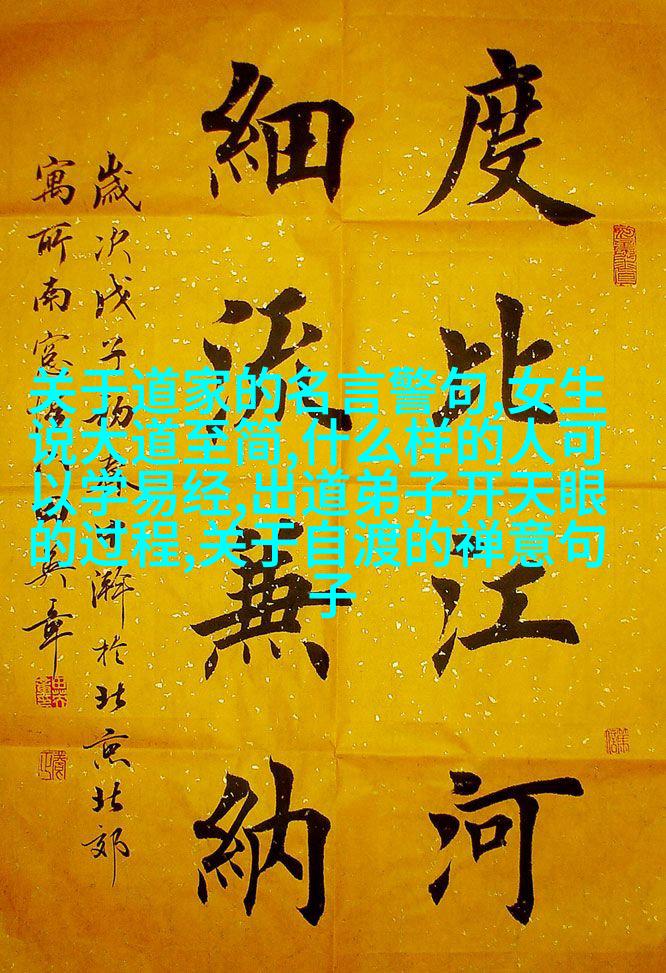 度比江河
細流兼納
歲次戊子初春瀚於北京北郊
寓所南窓田英章
关于道家的名言警句,女生
说大道至简,什么样的人可
以学易经,出道弟子开天眼
的过程,关于自渡的禅意句
子